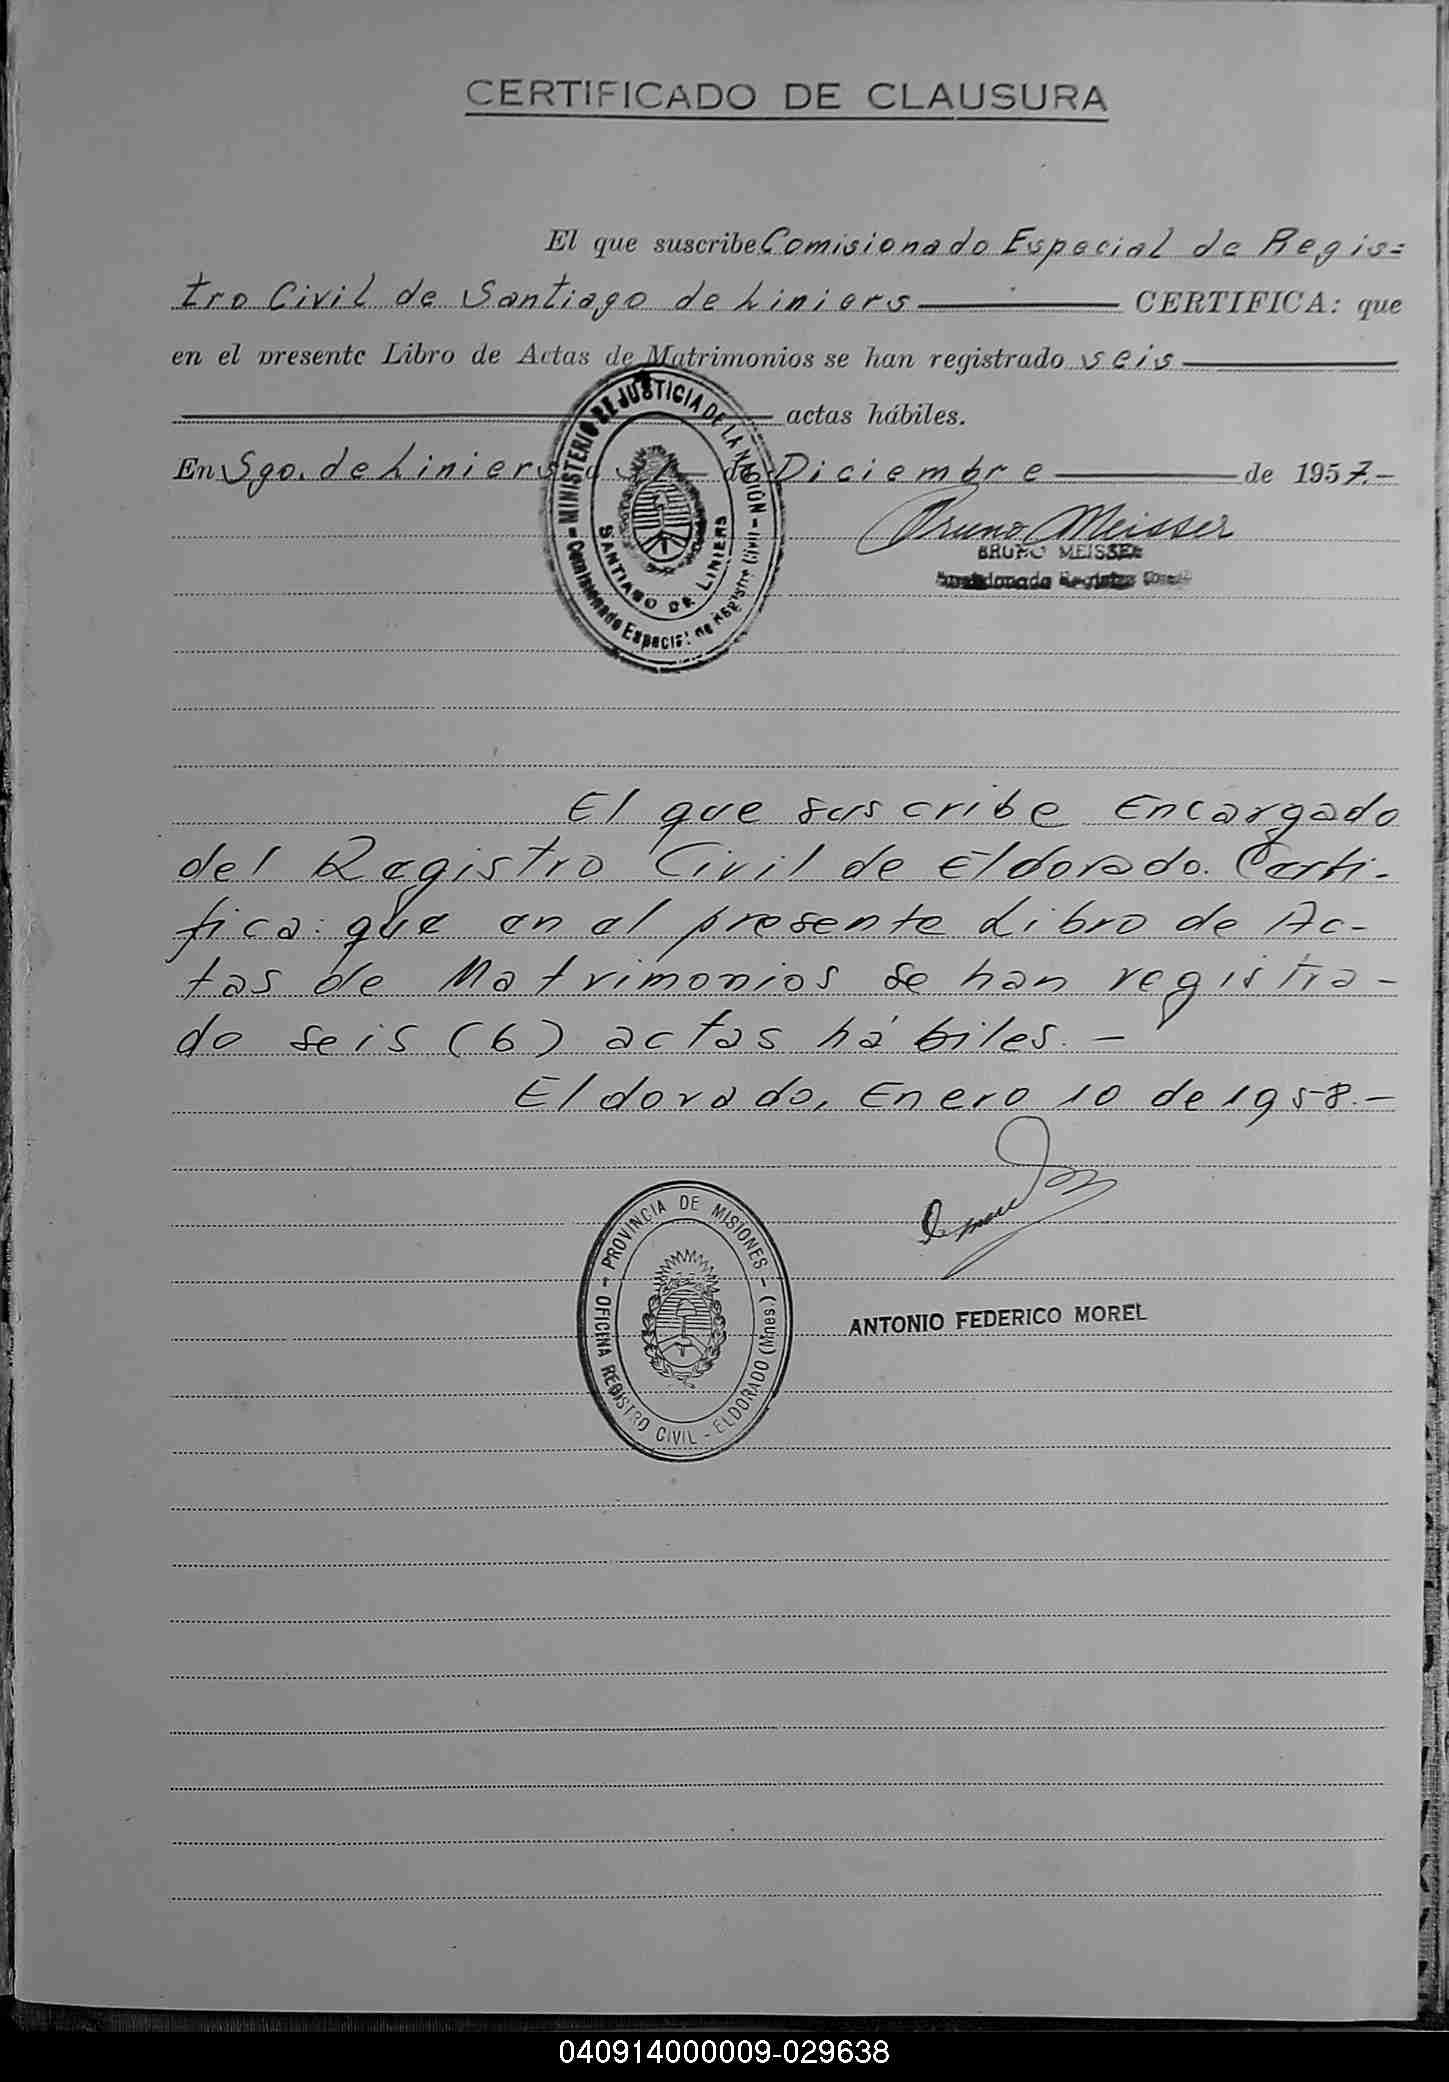 CERTIFICADO DE CLAUSURA
El que suscribe Comisionado Especial de Regis=
tro Civil de Santiago de Liniers CERTIFICA: que
en el presente Libro de Actas de Matrimonios se han registrado seis
actas hábiles.
En Sgo. de Liniers a 31 de Diciembre de 1957.-
Bruno Meisser
BRUNO MEISSER
MINISTERIO DE JUSTICIA DE LA NACION
Comisionado Especial de Registro Civil
SANTIAGO DE LINIERS
El que suscribe Encargado
del Registro Civil de Eldorado. Certi-
fica: que en el presente Libro de Ac-
tas de Matrimonios se han registra-
do seis (6) actas hábiles. -
Eldorado, Enero 10 de 1958.-
PROVINCIA DE MISIONES - (Mnes.)
OFICINA REGISTRO CIVIL - ELDORADO
ANTONIO FEDERICO MOREL
040914000009-029638